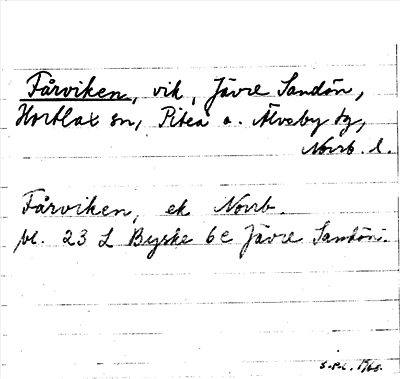 Fårviken, vik, Jävre Sandön,
Hortlax sn, Piteå o. Älvsby tg,
Norrb. l.
Fårviken, ek Norrb.
bl. 23 L Byske 6e Jävre Sandön.
S.P.C. 1965.